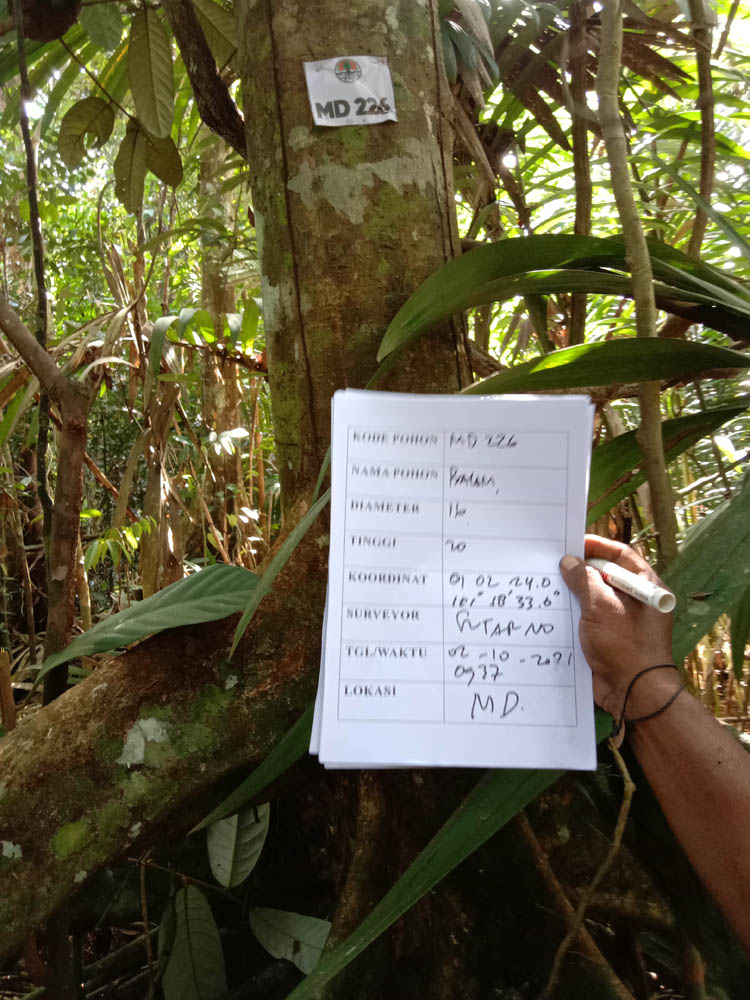 MD 226
KODE POHON MD 226
NAMA POHON BALAM,
DIAMETER 16
TINGGI 20
KOORDINAT 01 02 24.0
101° 18' 33.6"
SURVEYOR SUTARNO
TGL/WAKTU 02-10-2021
0937
LOKASI MD.